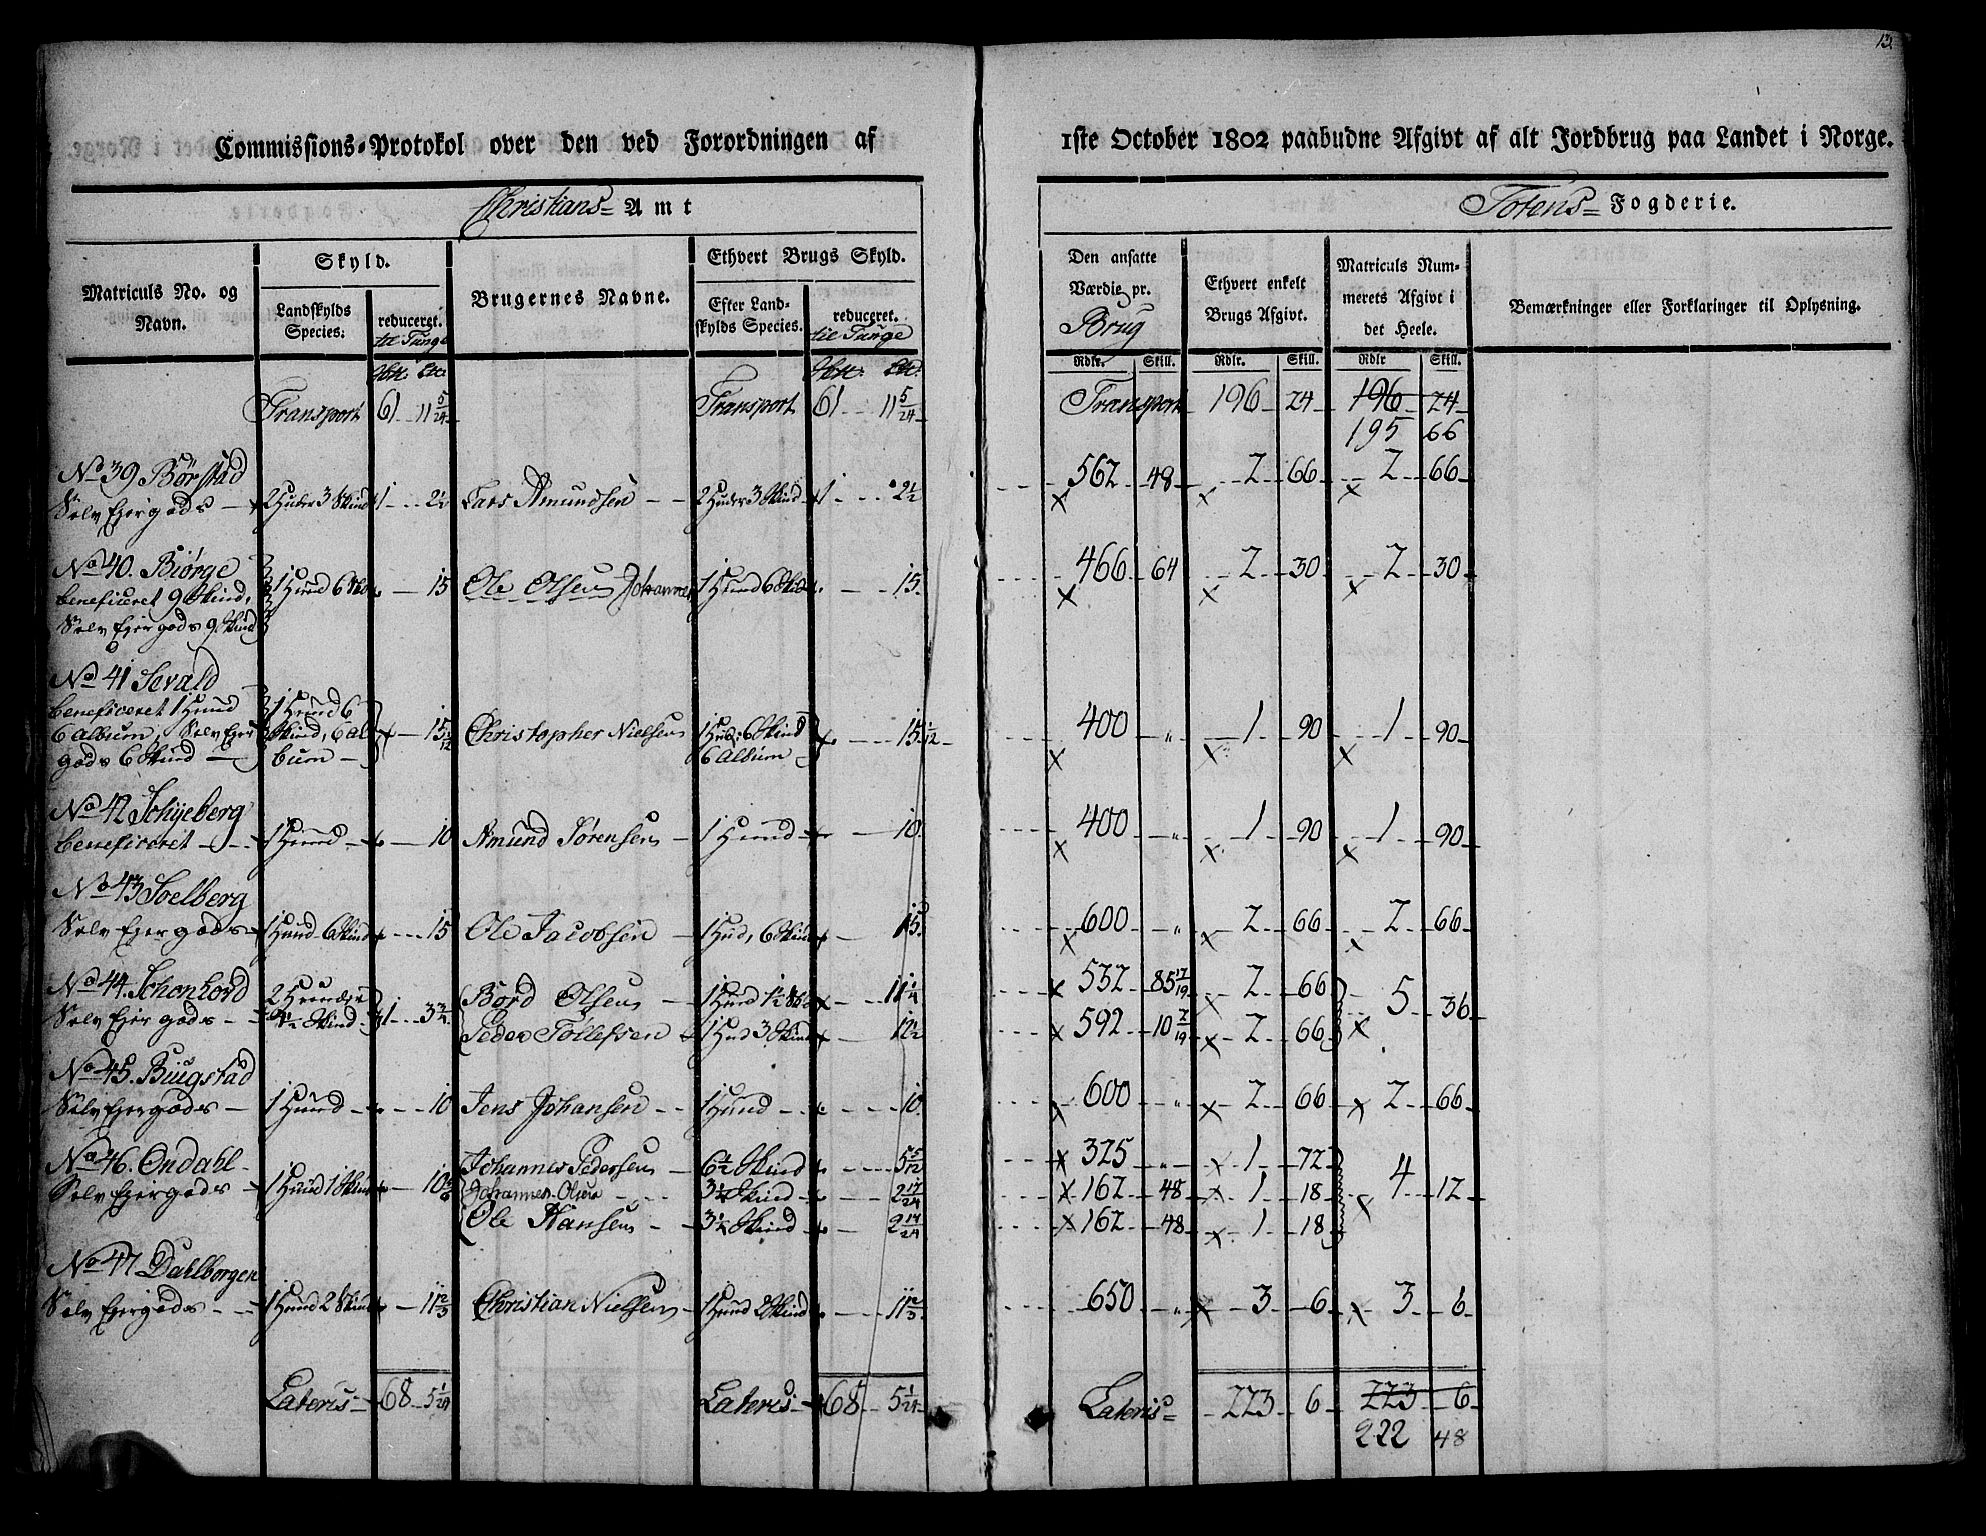 13.
Commissions-Protokol over den ved Forordningen af 1ste October 1802 paabudne Afgivt af alt Jordbrug paa Landet i Norge.
Christians= Amt
Totens= Fogderie.
Matriculs No. og Navn.
Skyld.
Landskylds Species.
reduceret. til Tunge
Brugernes Navne.
Ethvert Brugs Skyld.
Efter Landskylds Species.
reduceret. til Tunge
Den ansatte Værdie pr. Brug
Ethvert enkelt Brugs Afgivt.
Matriculs Nummerets Afgivt i det Heele.
Bemærkninger eller Forklaringer til Oplysning.
Rdlr. Skill. Rdlr. Skill. Rdlr Skill.
Transport 61 11 5/24 Transport 61 11 5/24 Transport 196 24 196 24
195 66
No 39 Børstad
Selv Ejer gods 2 Huder 3 Skind 1 2½ Lars Amundsen 2 Huder 3 Skind 1 2½ 562 48 2 66 2 66
No 40. Biørge
beneficeret 9 Skind, 1 Hud 6 Sk 15 Ole Olsen Johannes 1 Hud 6 Skind 15. 466 64 2 30 2 30
Selv Ejer gods 9 Skind
No 41 Sevald
beneficeret 1 Hud 1 Hud 6
6 Album, Selv Ejer Skind, 6 Al 15 1/12 Christopher Nielsen 1 Hud, 6 Skind 15 1/12 400 " 1 90 1 90
gods 6 Skind bum 6 Album
No 42 Schyeberg
beneficeret 1 Hud 10 Amund Sørensen 1 Hud 10. 400 " 1 90 1 90
No 43 Soelberg
Selv Ejer gods 1 Hud 6 Skind 15 Ole Jacobsen 1 Hud, 6 Skind 15. 600 " 2 66 2 66
No 44. Schonhord 2 Huder Bord Olsen 1 Hud 1½ Sk 11¼ 532 85 17/19 2 66
Selv Ejer gods 4½ Skind 1 3¾ Peder Tollefsen 1 Hud 3 Skind 12½ 592 10 2/19 2 66 5 36
No 45. Bugstad
Selv Ejer gods 1 Hud 10 Jens Johansen 1 Hud 10. 600 " 2 66 2 66
No 46. Ondahl Johannes Pedersen 6½ Skind 5 5/12 325 " 1 72
Selv Ejer gods 1 Hud 1 Skind 10 5/6 Johannes Olsen 3¼ Skind 2 17/24 162 48 1 18 4 12
Ole Hansen 3¼ Skind 2 17/24 162 48 1 18
No 47 Dahlborgen
Selv Ejer gods 1 Hud 2 Skind 11 2/3 Christian Nielsen 1 Hud 2 Skind 11 2/3 650 " 3 6 3 6
Lateris 68 5 1/24 Lateris 68 5 1/24 Lateris 223 6 223 6
222 48